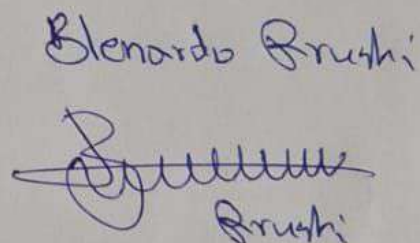 Blenardo Rrushi
Rrushi